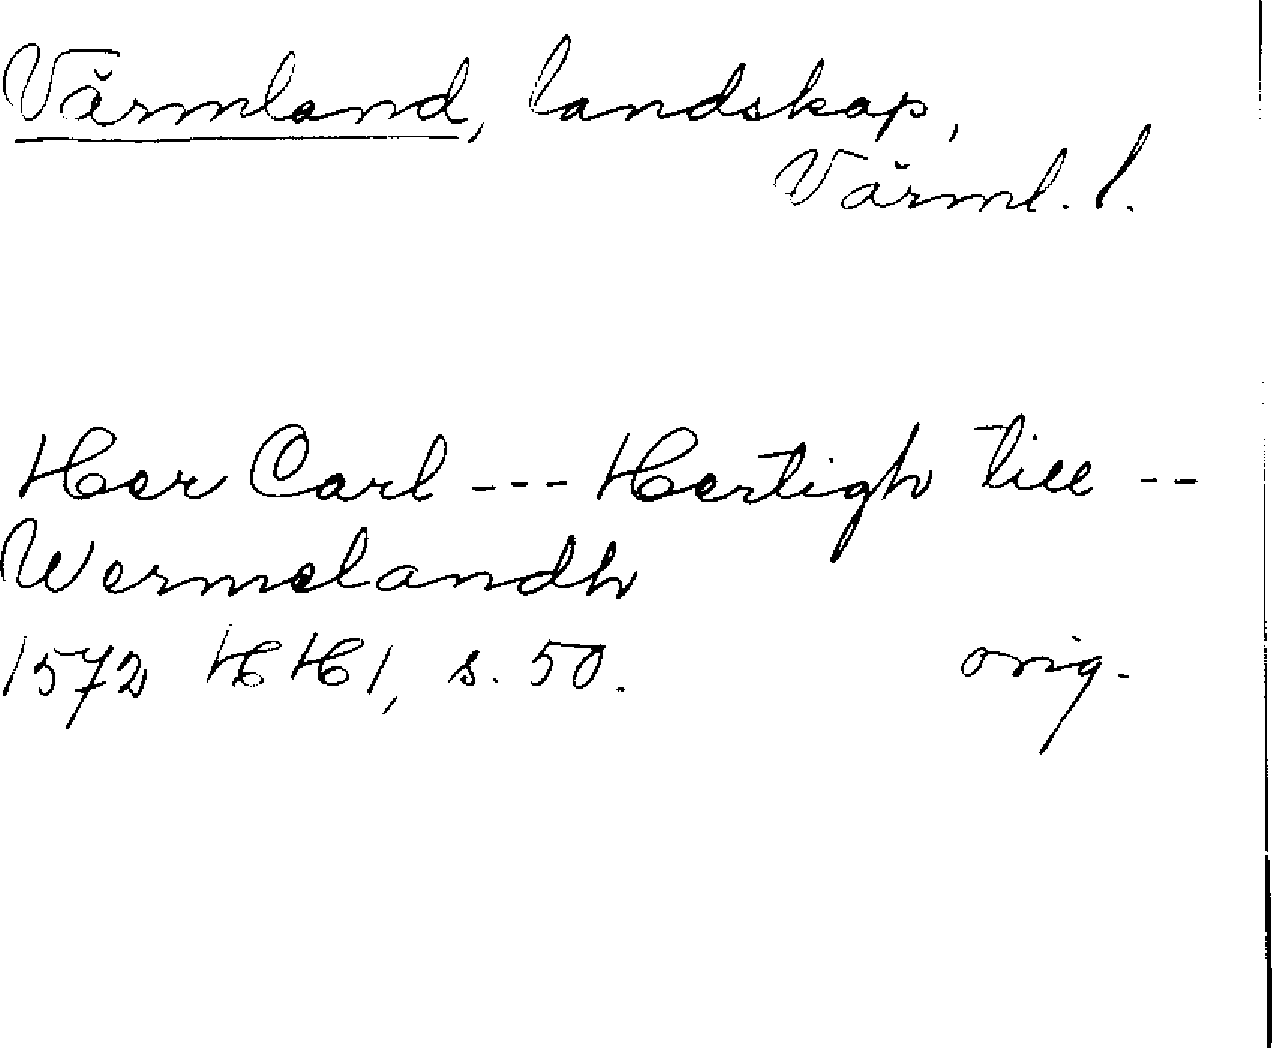 Värmland, landskap,
Värml. l.
Her Carl --- Hertigh till --
Wermelandh
1572 HH 1, s. 50. orig.